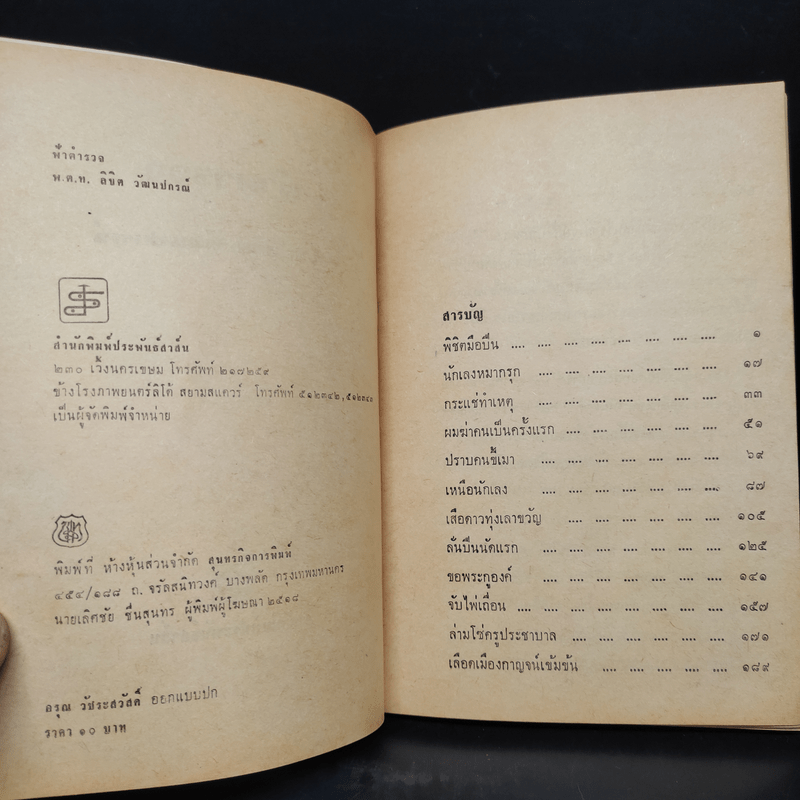 ฟ้าตำรวจ
พ.ต.ท. ลิขิต วัฒนปกรณ์
สำนักพิมพ์ประพันธ์สาส์น
๒๓๐ เวิ้งนครเขษม โทรศัพท์ ๒๑๘๒๕๙
ข้างโรงภาพยนตร์ลิโด้ สยามสแควร์ โทรศัพท์ ๕๑๒๓๔๒,
เป็นผู้จัดพิมพ์จำหน่าย
พิมพ์ที่ ห้างหุ้นส่วนจำกัด สุนทรกิจการพิมพ์
๔๕๔/๑๘๘ ถ. จรัลสนิทวงศ์ บางพลัด กรุงเทพมหานคร
นายเลิศชัย ชื่นสุนทร ผู้พิมพ์ผู้โฆษณา ๒๕๑๘
อรุณ วัชระสวัสดิ์ ออกแบบปก
ราคา ๑๐ บาท
สารบัญ
พิชิตมือปืน .... .... .... .... .... .... .... ๑
นักเลงหมากรุก .... .... .... .... .... .... ๑๗
กระแช่ทำเหตุ .... .... .... .... .... .... ๓๓
ผมฆ่าคนเป็นครั้งแรก .... .... .... .... .... .... ๕๑
ปราบคนขี้เมา .... .... .... .... .... .... ๖๙
เหนือนักเลง .... .... .... .... .... .... ๘๗
เสือดาวทุ่งเลาขวัญ .... .... .... .... .... .... ๑๐๕
ลั่นปืนนัดแรก .... .... .... .... .... .... ๑๒๕
ขอพระกูองค์ .... .... .... .... .... .... ๑๔๑
จับไพ่เถื่อน .... .... .... .... .... .... ๑๕๗
ล่ามโซ่ครูประชาบาล .... .... .... .... .... .... ๑๗๑
เลือดเมืองกาญจน์เข้มข้น .... .... .... .... .... ๑๘๙